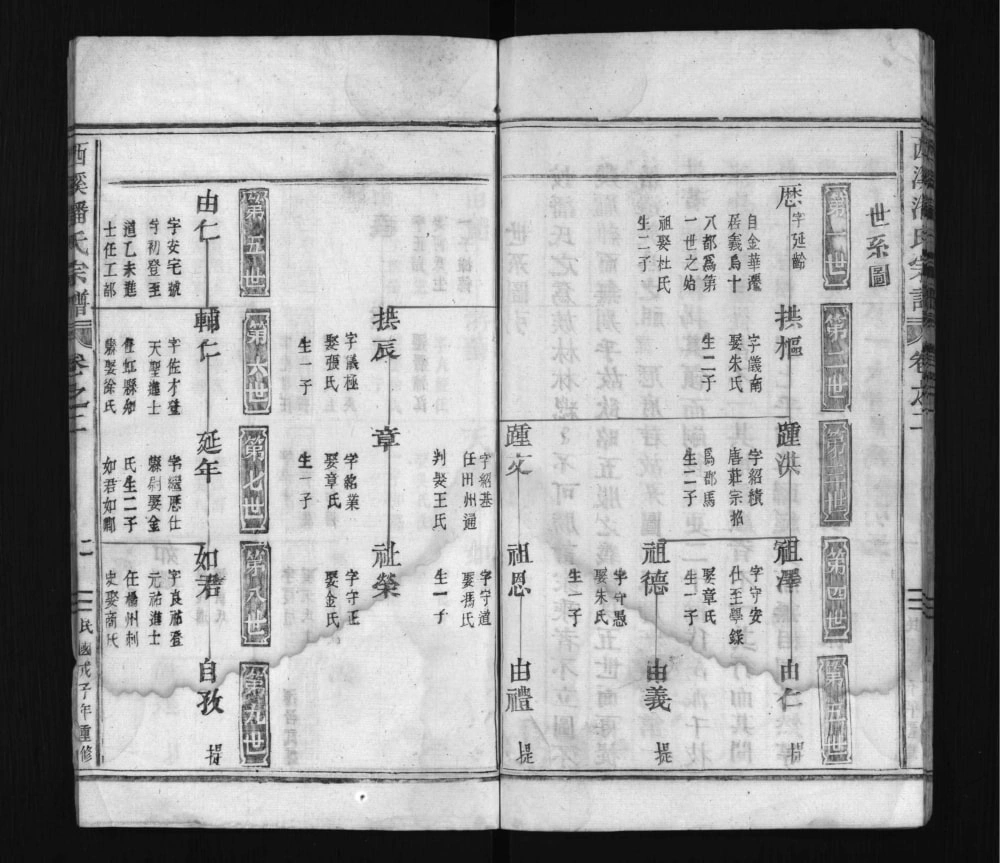 世系圖
第一世
第二世
第三世
第四世
第五世
歷
字延齡
自金華遷
居義烏十
八都爲第
一世之始
祖娶杜氏
生二子
拱樞
字儀南
娶朱氏
生二子
踵洪
字紹績
唐莊宗招
爲郡馬
生二子
祖澤
字守安
仕至學錄
由仁
提
祖德
娶章氏
生一子
由義
提
踵文
字紹基
任田州通
判娶王氏
祖恩
字守愚
娶朱氏
生一子
由禮
提
拱辰
字議極
娶張氏
生一子
章
字銘業
娶章氏
生一子
祉榮
字守道
娶馮氏
生一子
字守正
娶金氏
第五世
第六世
第七世
第八世
第九世
由仁
字安宅號
等初登至
道乙未進
士任工部
輔仁
字佐才登
天聖進士
任虹縣知
縣娶徐氏
延年
字繼應仕
縣尉娶金
氏生二子
如君如卿
如君
字良弼登
元祐進士
任楊州刺
史娶商氏
自孜
提
西溪潘氏宗譜
卷之二
二
民國戊子年重修